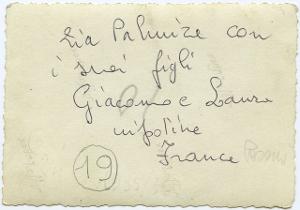 zia Palmira con
i suoi figli
Giacomo e Laura
nipotine
France
19